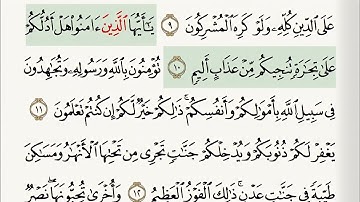 عَلَى ٱلدِّينِ كُلِّهِۦ وَلَوْ كَرِهَ ٱلْمُشْرِكُونَ ٩ يَـٰٓأَيُّهَا ٱلَّذِينَ ءَامَنُوا۟ هَلْ أَدُلُّكُمْ
عَلَىٰ تِجَـٰرَةٍ تُنجِيكُم مِّنْ عَذَابٍ أَلِيمٍ ١٠ تُؤْمِنُونَ بِٱللَّهِ وَرَسُولِهِۦ وَتُجَـٰهِدُونَ
فِى سَبِيلِ ٱللَّهِ بِأَمْوَٰلِكُمْ وَأَنفُسِكُمْ ۚ ذَٰلِكُمْ خَيْرٌ لَّكُمْ إِن كُنتُمْ تَعْلَمُونَ ١١
يَغْفِرْ لَكُمْ ذُنُوبَكُمْ وَيُدْخِلْكُمْ جَنَّـٰتٍ تَجْرِى مِن تَحْتِهَا ٱلْأَنْهَـٰرُ وَمَسَـٰكِنَ
طَيِّبَةً فِى جَنَّـٰتِ عَدْنٍ ۚ ذَٰلِكَ ٱلْفَوْزُ ٱلْعَظِيمُ ١٢ وَأُخْرَىٰ تُحِبُّونَهَا ۖ نَصْرٌ